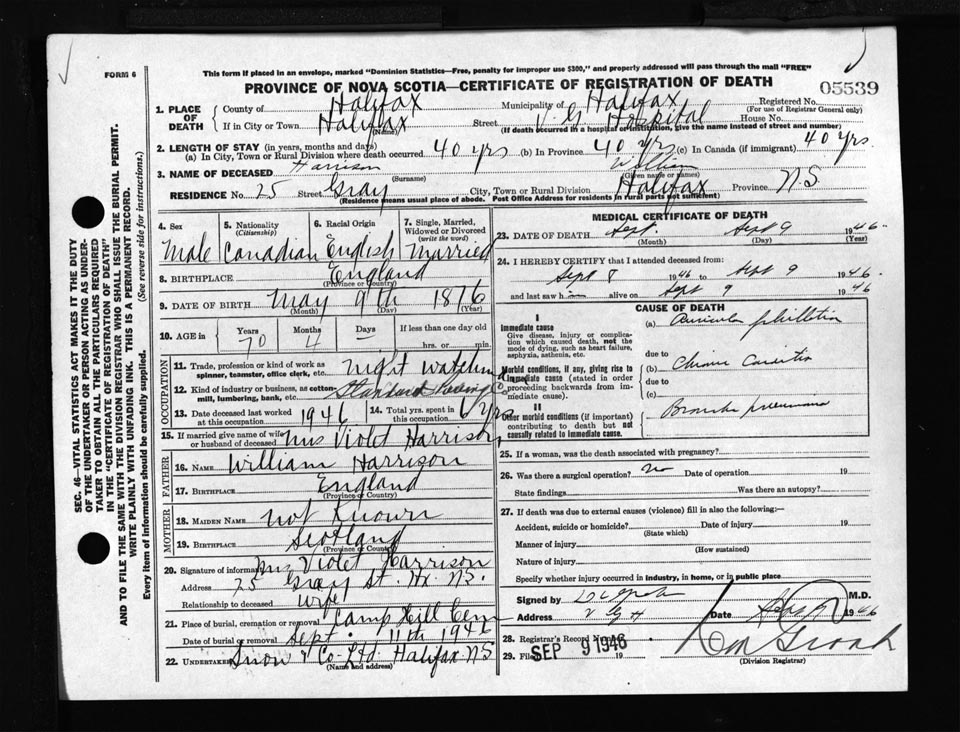 FORM 6
This form if placed in an envelope, marked "Dominion Statistics—Free, penalty for improper use $300," and properly addressed will pass through the mail "FREE"
PROVINCE OF NOVA SCOTIA—CERTIFICATE OF REGISTRATION OF DEATH
05539
1. PLACE OF DEATH
County of Halifax Municipality of Halifax Registered No.
(For use of Registrar General only)
If in City or Town Halifax Street V. G. Hospital House No.
(Name) (If death occurred in a hospital or institution, give the name instead of street and number)
2. LENGTH OF STAY (in years, months and days)
(a) In City, Town or Rural Division where death occurred 40 yrs (b) In Province 40 yrs (c) In Canada (if immigrant) 40 yrs.
3. NAME OF DECEASED Harrison William
(Surname) (Given name or names)
RESIDENCE No. 25 Street Gray City, Town or Rural Division Halifax Province N.S
(Residence means usual place of abode. Post Office Address for residents in rural parts not sufficient)
4. Sex Male
5. Nationality (Citizenship) Canadian
6. Racial Origin English
7. Single, Married, Widowed or Divorced (write the word) Married
8. BIRTHPLACE England
(Province or Country)
9. DATE OF BIRTH May 9th 1876
(Month) (Day) (Year)
10. AGE in Years 70 Months 4 Days — If less than one day old
hrs. or min.
OCCUPATION
11. Trade, profession or kind of work as spinner, teamster, office clerk, etc. night watchman
12. Kind of industry or business, as cotton-mill, lumbering, bank, etc. Standard Paving Co
13. Date deceased last worked at this occupation 1946 14. Total yrs. spent in this occupation 6 yrs
15. If married give name of wife or husband of deceased Mrs Violet Harrison
FATHER
16. NAME William Harrison
17. BIRTHPLACE England
(Province or Country)
MOTHER
18. MAIDEN NAME not Known
19. BIRTHPLACE Scotland
(Province or Country)
20. Signature of informant Mrs Violet Harrison
Address 25 Gray St. Hx. N.S.
Relationship to deceased wife
21. Place of burial, cremation or removal Camp Hill Cem
Date of burial or removal Sept. 11th 1946
22. UNDERTAKER Snow & Co. Ltd. Halifax N.S
(Name and address)
MEDICAL CERTIFICATE OF DEATH
23. DATE OF DEATH Sept. Sept 9 1946
(Month) (Day) (Year)
24. I HEREBY CERTIFY that I attended deceased from:
Sept 8 1946 to Sept 9 1946
and last saw h im alive on Sept 9 1946
CAUSE OF DEATH
I
Immediate cause
Give disease, injury or complication which caused death, not the mode of dying, such as heart failure, asphyxia, asthenia, etc.
(a)
due to
Morbid conditions, if any, giving rise to immediate cause (stated in order proceeding backwards from immediate).
(b)
due to
(c)
II
Other morbid conditions (if important) contributing to death but not causally related to immediate cause.
Broncho pneumonia
25. If a woman, was the death associated with pregnancy?
26. Was there a surgical operation? no Date of operation 19
State findings Was there an autopsy?
27. If death was due to external causes (violence) fill in also the following:—
Accident, suicide or homicide? Date of injury 19
(State which)
Manner of injury
(How sustained)
Nature of injury
Specify whether injury occurred in industry, in home, or in public place
Signed by M.D.
Address V G H Date Sept 9 1946
28. Registrar's Record Number
29. Filed SEP 9 1946 19
(Division Registrar)
SEC. 46—VITAL STATISTICS ACT MAKES IT THE DUTY
OF THE UNDERTAKER OR PERSON ACTING AS UNDER-
TAKER TO OBTAIN ALL THE PARTICULARS REQUIRED
IN THE "CERTIFICATE OF REGISTRATION OF DEATH"
AND TO FILE THE SAME WITH THE DIVISION REGISTRAR WHO SHALL ISSUE THE BURIAL PERMIT.
WRITE PLAINLY WITH UNFADING INK. THIS IS A PERMANENT RECORD.
Every item of information should be carefully supplied. (See reverse side for instructions.)